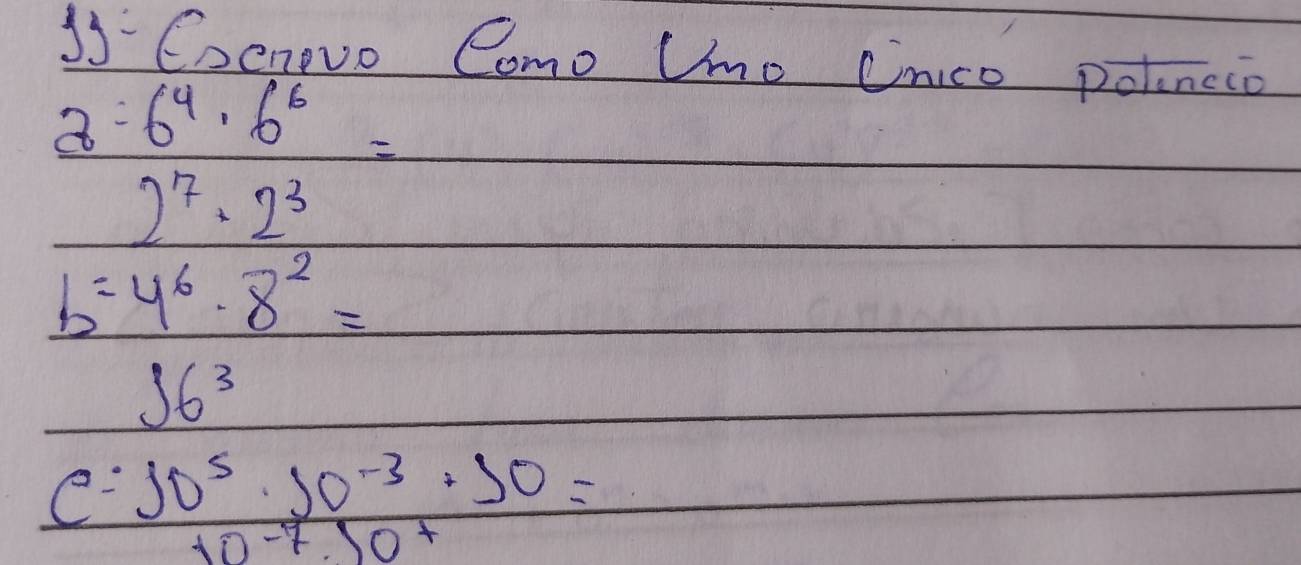 11- Escreva Como Uma Única potência
a - 6⁴ · 6⁶ =
2⁷ · 2³
b = 4⁶ · 8² =
16³
c - 10⁵ · 10⁻³ · 10 =
10⁻⁷ · 10⁺